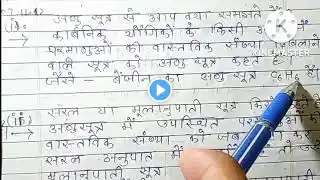 अणु सूत्र से आप क्या समझते
कार्बनिक यौगिकों के किसी
परमाणुओं की वास्तविक संख्या
वाले सूत्र को अणु सूत्र कहते हैं
जैसे - बेंजीन का अणु सूत्र C6H6 है।
सरल या मूलानुपाती सूत्र किसे
अणुसूत्र में उपस्थित
वास्तविक संख्या को जब
सरल अनुपात में तो
मूलानुपाती सूत्र